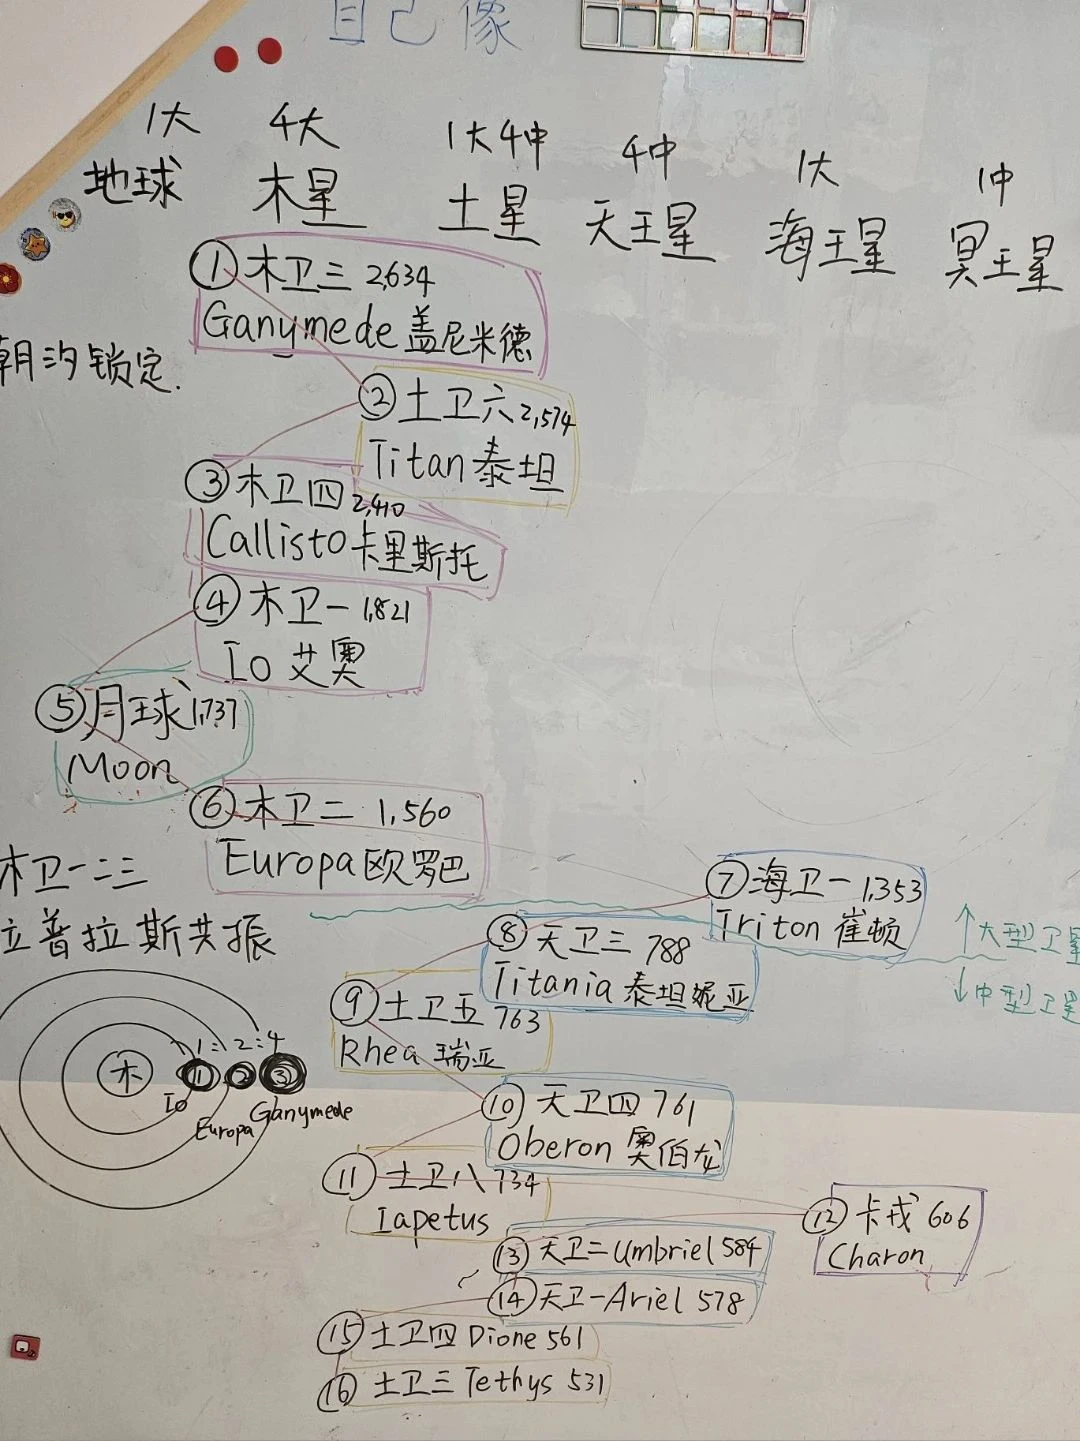 自己像
1大 4大 1大4中 4中 1大 1中
地球 木星 土星 天王星 海王星 冥王星
① 木卫三 2,634
Ganymede 盖尼米德
潮汐锁定.
② 土卫六 2,574
Titan 泰坦
③ 木卫四 2,410
Callisto 卡里斯托
④ 木卫一 1,821
Io 艾奥
⑤ 月球 1,737
Moon
⑥ 木卫二 1,560
Europa 欧罗巴
⑦ 海卫一 1,353
Triton 崔顿
↑大型卫星
↓中型卫星
⑧ 天卫三 788
Titania 泰坦妮亚
⑨ 土卫五 763
Rhea 瑞亚
⑩ 天卫四 761
Oberon 奥伯龙
⑪ 土卫八 734
Iapetus
⑫ 卡戎 606
Charon
⑬ 天卫二 Umbriel 584
⑭ 天卫一 Ariel 578
⑮ 土卫四 Dione 561
⑯ 土卫三 Tethys 531
木卫一二三
拉普拉斯共振
1:2:4
木 ① ② ③
Io Europa Ganymede